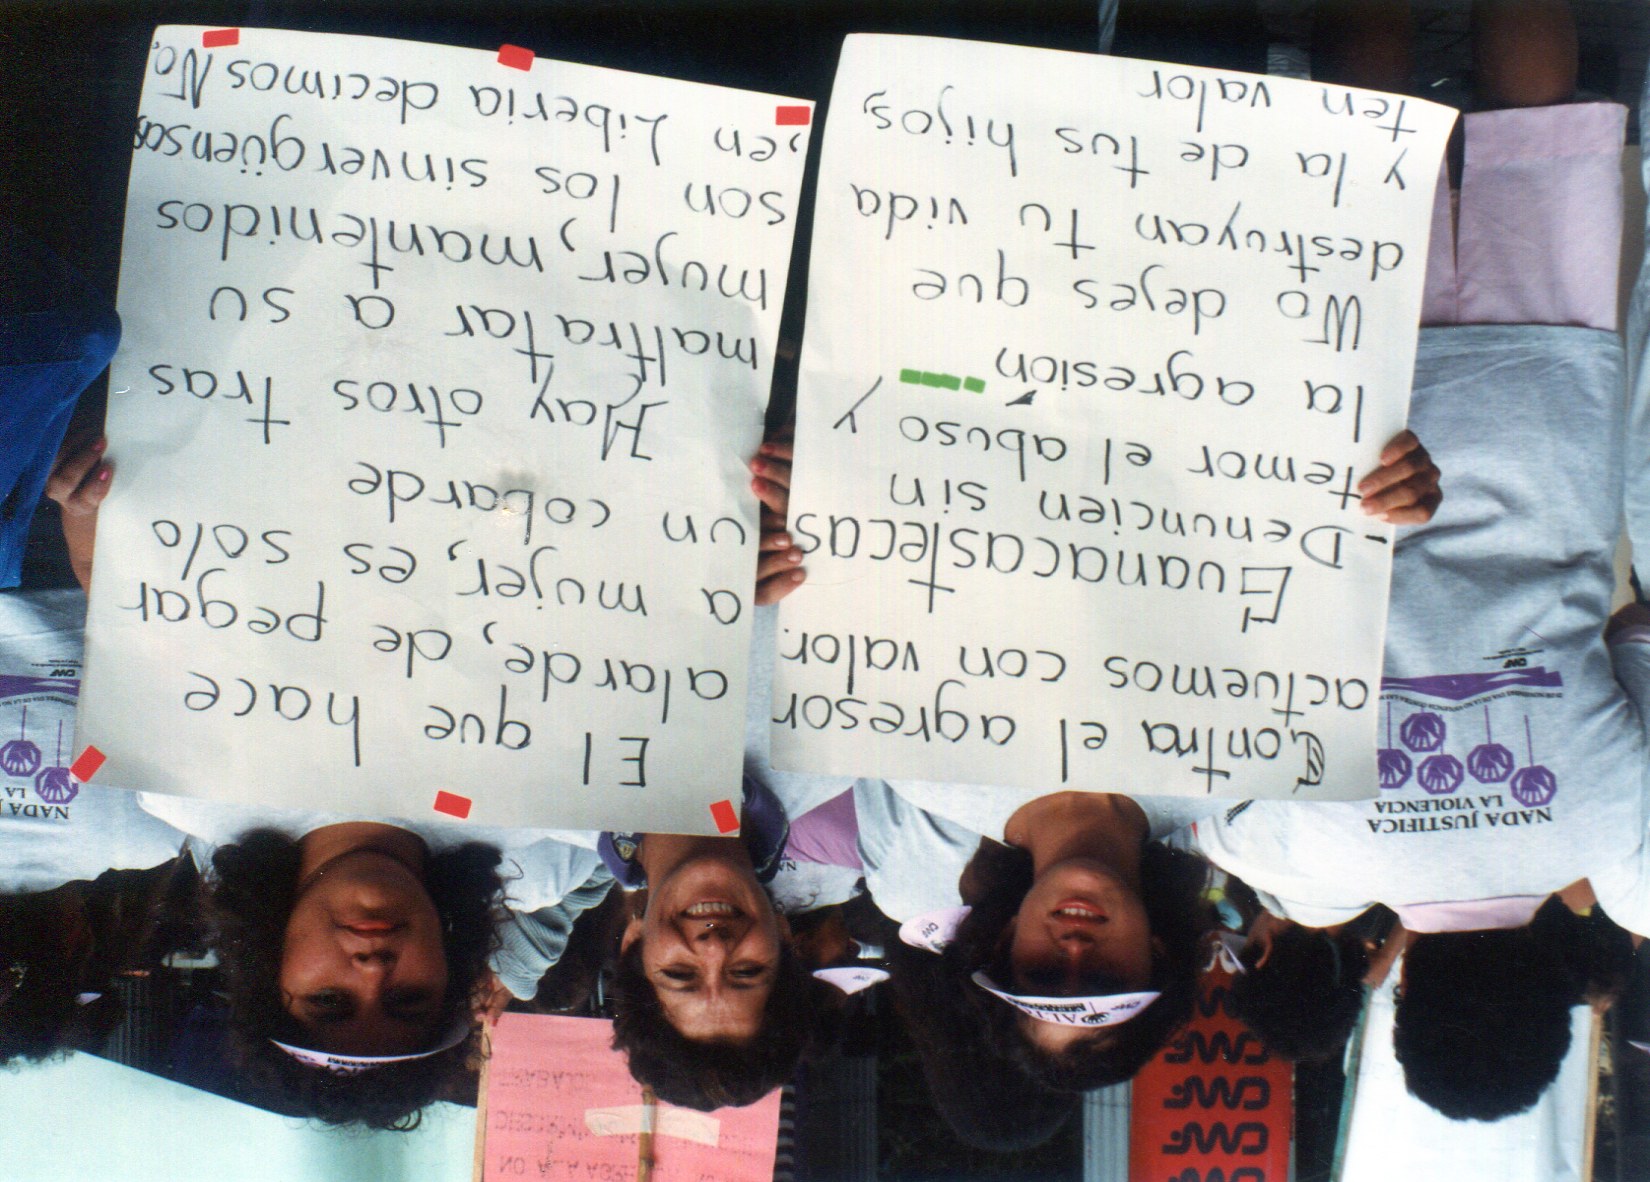 NADA JUSTIFICA
LA VIOLENCIA
CMF
Contra el agresor
actuemos con valor.
Guanacastecas
- Denuncien sin
temor el abuso y
la agresión
No dejes que
destruyan tu vida
y la de tus hijos,
ten valor
El que hace
alarde, de pegar
a mujer, es solo
un cobarde
Hay otros tras
maltratar a su
mujer, mantenidos
son los sinvergüensas
, en Liberia decimos No.
CMF
CMF
CMF
CMF
NADA
LA
CMF